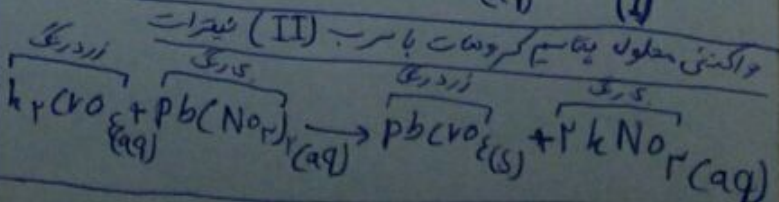 (I)
واکنش محلول پتاسیم کرومات با سرب (II) نیترات
زرد رنگ بی رنگ زرد رنگ بی رنگ
k۲CrO۴(aq) + pb(NO۳)۲(aq) → pbcrO۴(s) + ۲kNO۳(aq)